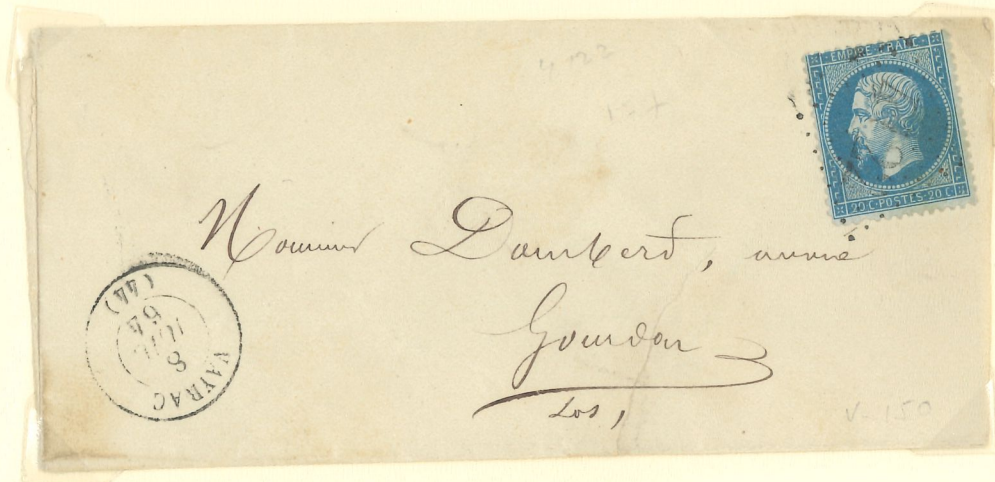 4122
EMPIRE FRANC
20 C · POSTES · 20 C
Monsieur Dambert, avoué
Gourdon
Lot,
VAYRAC
8
64
(44)
V-150